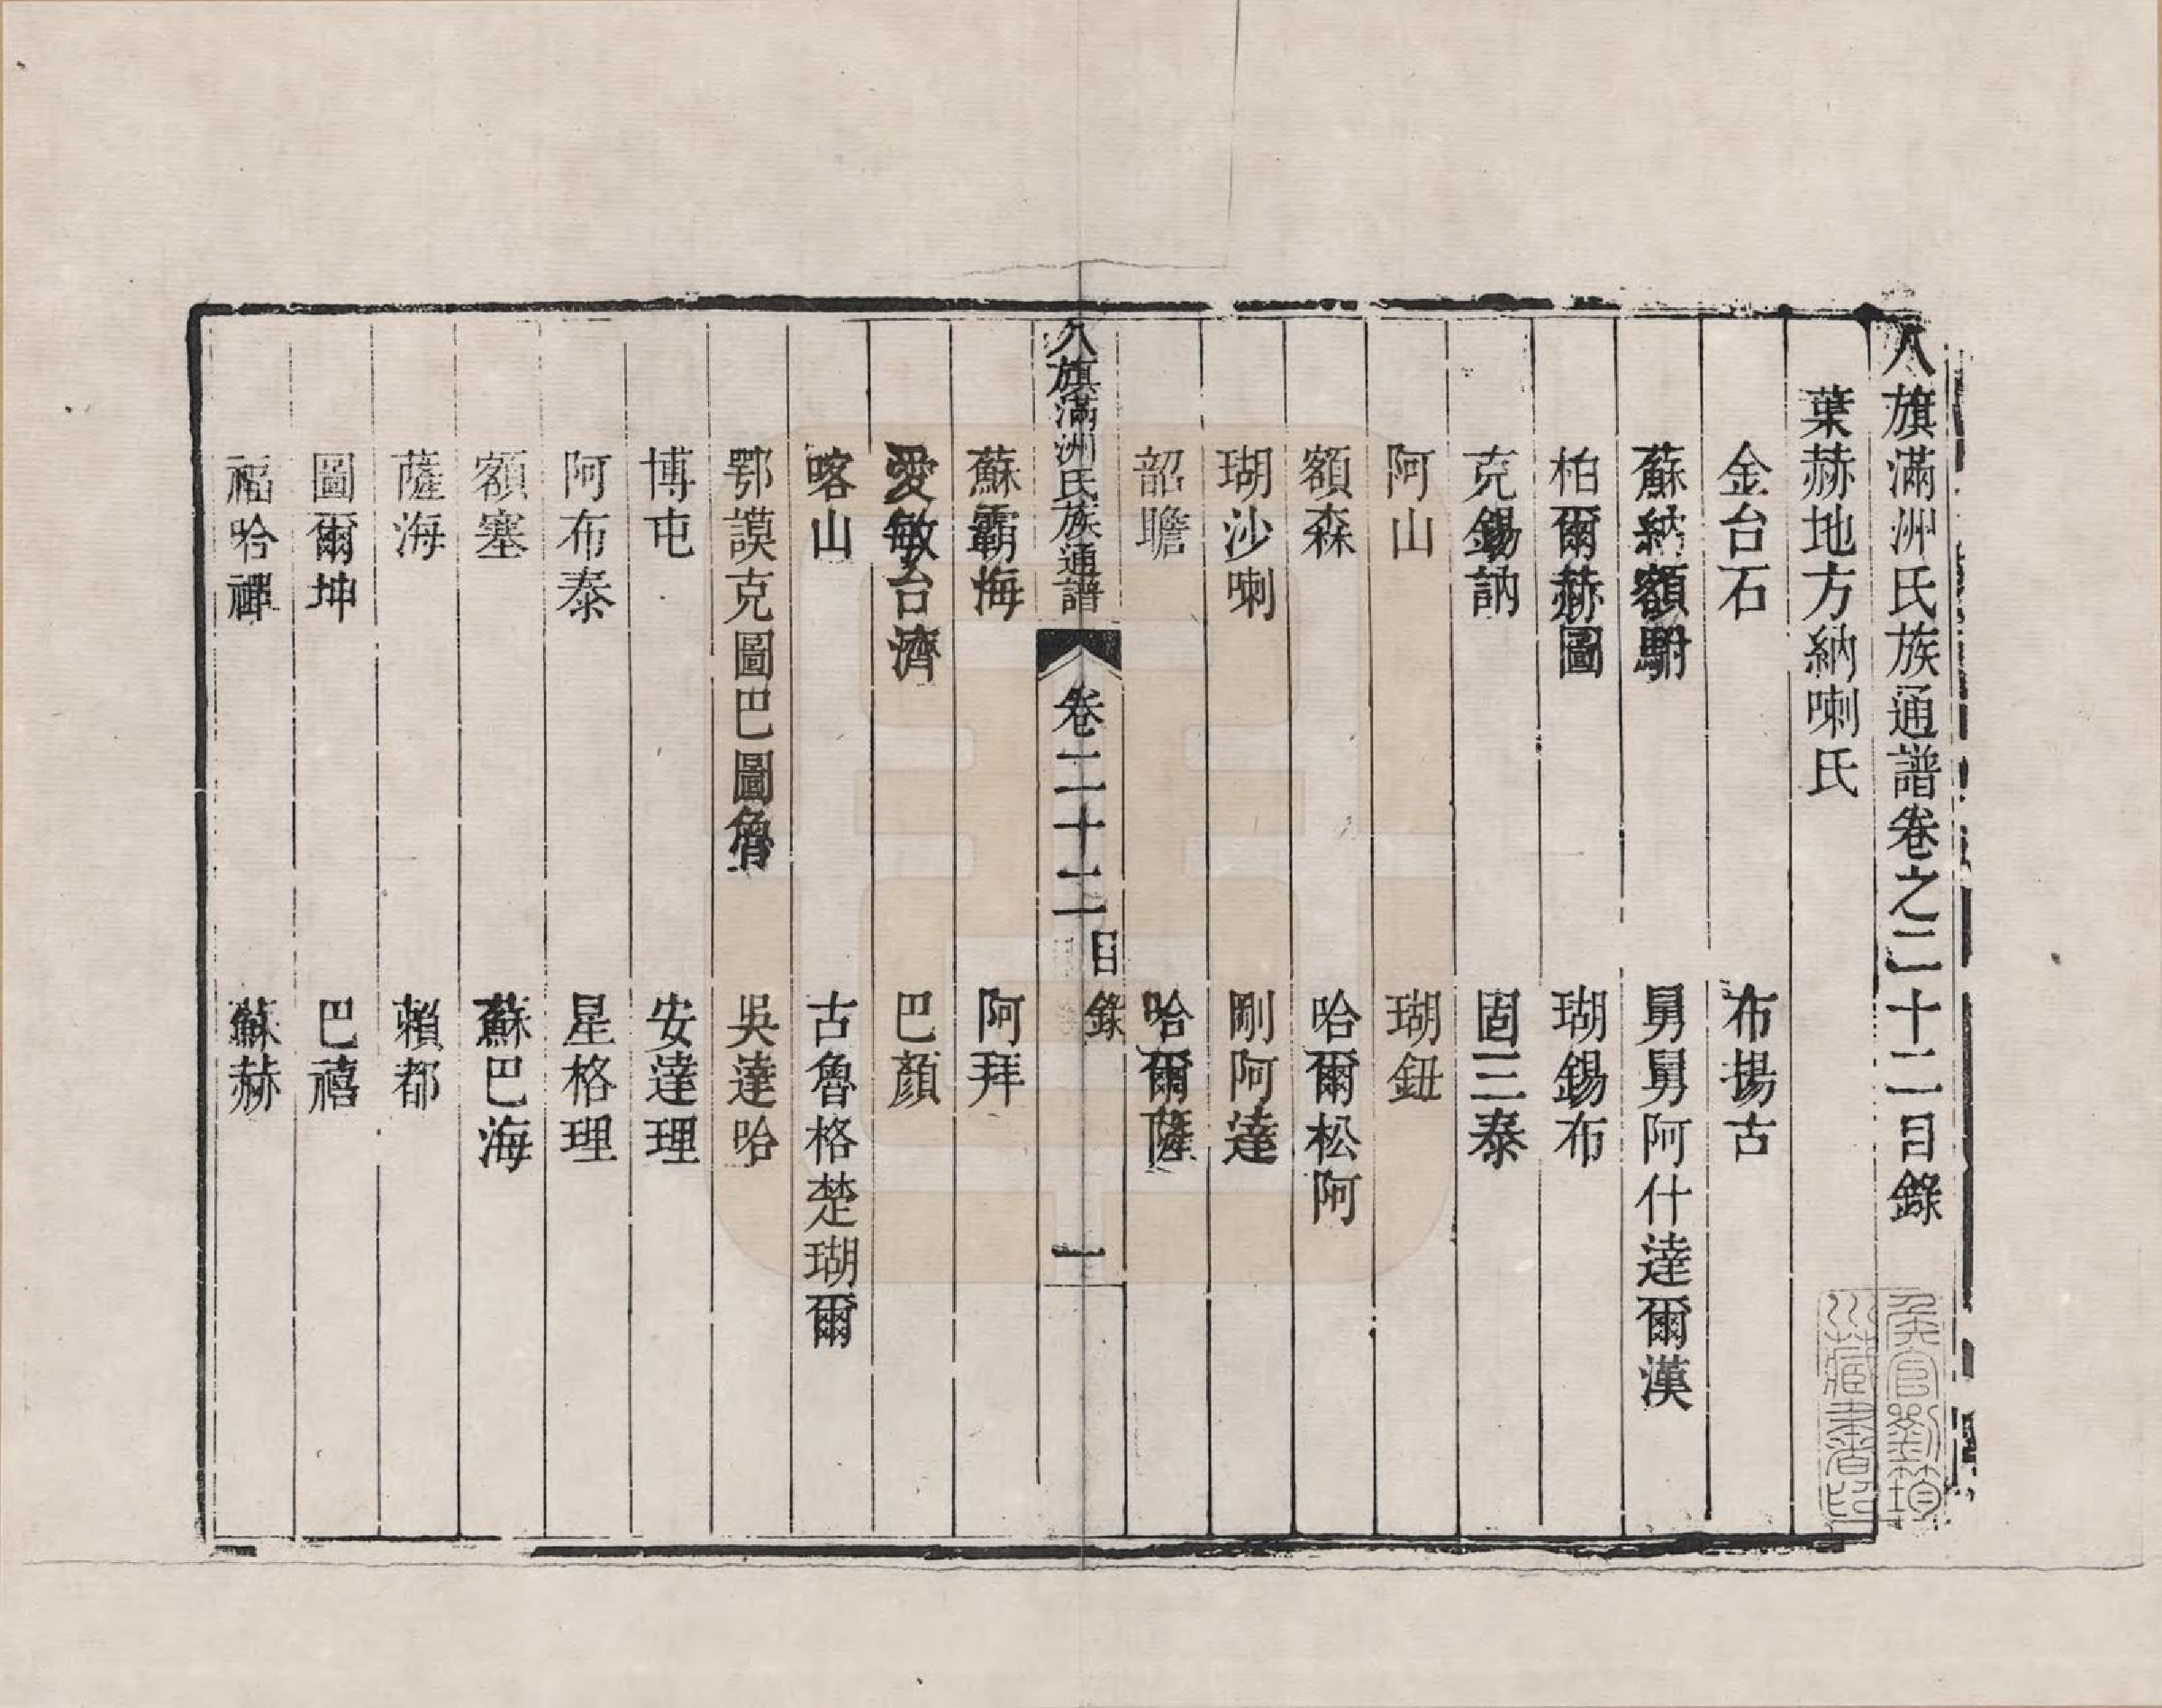 八旗滿洲氏族通譜卷之二十二目錄
葉赫地方納喇氏
金台石　布揚古
蘇納額駙　舅舅阿什達爾漢
柏爾赫圖　瑚錫布
克錫訥　固三泰
阿山　瑚鈕
額森　哈爾松阿
瑚沙喇　剛阿達
韶瞻　哈爾薩
八旗滿洲氏族通譜　卷二十二　目錄　一
蘇霸海　阿拜
愛敏台濟　巴顏
喀山　古魯格楚瑚爾
鄂謨克圖巴圖魯　吳達哈
博屯　安達理
阿布泰　星格理
額塞　蘇巴海
薩海　賴都
圖爾坤　巴禧
福哈禪　蘇赫
侯官劉筠
川藏書印